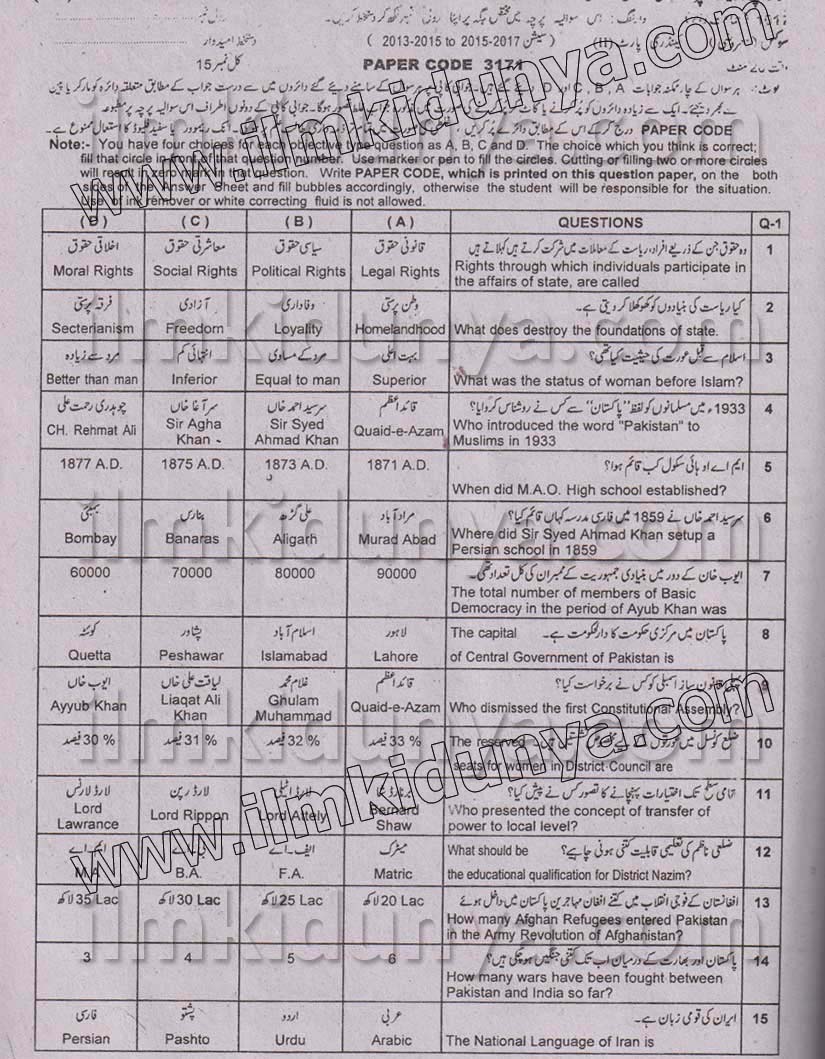 وارننگ:۔ اس سوالیہ پرچہ میں مختص جگہ پر اپنا رولنمبر لکھ کر دستخط کریں۔
(2013-2015 to 2015-2017 سیشن)
دستخط امیدوار
PAPER CODE 3171
کل نمبر 15
PAPER CODE
Note:- You have four choices for each objective type question as A, B, C and D. The choice which you think is correct;
fill that circle in front of that question number. Use marker or pen to fill the circles. Cutting or filling two or more circles
will result in zero mark in that question. Write PAPER CODE, which is printed on this question paper, on the both
sides of the Answer Sheet and fill bubbles accordingly, otherwise the student will be responsible for the situation.
Use of ink remover or white correcting fluid is not allowed.
( D ) ( C ) ( B ) ( A ) QUESTIONS Q-1
اخلاقی حقوق معاشرتی حقوق سیاسی حقوق قانونی حقوق وہ حقوق جن کے ذریعے افراد، ریاست کے معاملات میں شرکت کرتے ہیں کہلاتے ہیں 1
Moral Rights Social Rights Political Rights Legal Rights Rights through which individuals participate in
the affairs of state, are called
فرقہ پرستی آزادی وفاداری وطن پرستی کیا ریاست کی بنیادوں کو کھوکھلا کر دیتی ہے۔ 2
Secterianism Freedom Loyality Homelandhood What does destroy the foundations of state.
مرد سے زیادہ انتہائی کم مرد کے مساوی بہت اعلی اسلام سے قبل عورت کی حیثیت کیا تھی؟ 3
Better than man Inferior Equal to man Superior What was the status of woman before Islam?
چوہدری رحمت علی سر آغا خاں سر سید احمد خاں قائد اعظم 1933ء میں مسلمانوں کو لفظ "پاکستان" سے کس نے روشناس کروایا؟ 4
CH. Rehmat Ali Sir Agha Khan Sir Syed Ahmad Khan Quaid-e-Azam Who introduced the word "Pakistan" to
Muslims in 1933
1877 A.D. 1875 A.D. 1873 A.D. 1871 A.D. ایم اے او ہائی سکول کب قائم ہوا؟ 5
When did M.A.O. High school established?
بمبئی بنارس علی گڑھ مراد آباد سر سید احمد خاں نے 1859 میں فارسی مدرسہ کہاں قائم کیا؟ 6
Bombay Banaras Aligarh Murad Abad Where did Sir Syed Ahmad Khan setup a
Persian school in 1859
60000 70000 80000 90000 ایوب خان کے دور میں بنیادی جمہوریت کے ممبران کی کل تعداد تھی۔ 7
The total number of members of Basic
Democracy in the period of Ayub Khan was
کوئٹہ پشاور اسلام آباد لاہور پاکستان میں مرکزی حکومت کا دارالحکومت ہے۔ The capital 8
Quetta Peshawar Islamabad Lahore of Central Government of Pakistan is
ایوب خاں لیاقت علی خاں غلام محمد قائد اعظم قانون ساز اسمبلی کو کس نے برخواست کیا؟ 9
Ayyub Khan Liaqat Ali Khan Ghulam Muhammad Quaid-e-Azam Who dismissed the first Constitutional Assembly?
30 % فیصد 31 % فیصد 32 % فیصد 33 % فیصد ضلع کونسل میں عورتوں The reserved 10
seats for women in District Council are
لارڈ لارنس لارڈ رپن لارڈ اٹیلی مقامی سطح تک اختیارات پہنچانے کا تصور کس نے پیش کیا؟ 11
Lord Lawrance Lord Rippon Lord Attely Bernard Shaw Who presented the concept of transfer of
power to local level?
ایم اے ایف۔اے میٹرک ضلعی ناظم کی تعلیمی قابلیت کتنی ہونی چاہیے؟ What should be 12
M.A. B.A. F.A. Matric the educational qualification for District Nazim?
35 Lac لاکھ 30 Lac لاکھ 25 Lac لاکھ 20 Lac لاکھ افغانستان کے فوجی انقلاب میں کتنے افغان مہاجرین پاکستان میں داخل ہوئے 13
How many Afghan Refugees entered Pakistan
in the Army Revolution of Afghanistan?
3 4 5 6 پاکستان اور بھارت کے درمیان اب تک کتنی جنگیں ہو چکی ہیں؟ 14
How many wars have been fought between
Pakistan and India so far?
فارسی پشتو اردو عربی ایران کی قومی زبان ہے۔ 15
Persian Pashto Urdu Arabic The National Language of Iran is
www.ilmkidunya.com
www.ilmkidunya.com
ilmkidunya.com
ilmkidunya.com
ilmkidunya.com
ilmkidunya.com
ilmkidunya.com